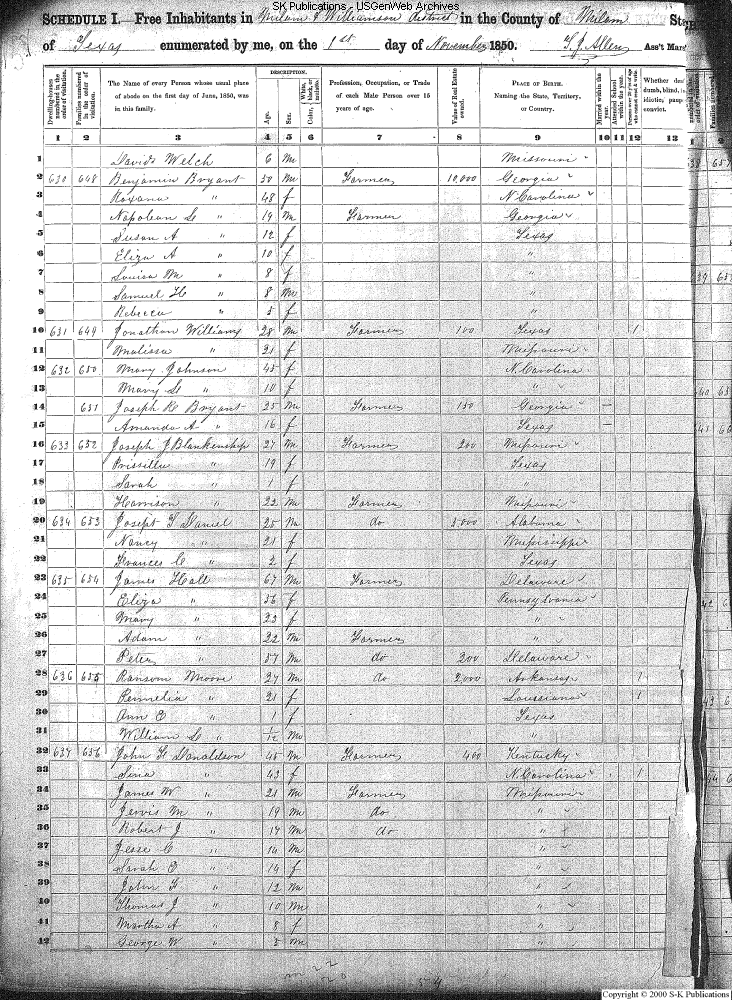 SK Publications - USGenWeb Archives
SCHEDULE I. Free Inhabitants in Milam & Williamson District in the County of Milam State
of Texas enumerated by me, on the 1st day of November 1850. Ass't Mars
Dwelling-houses numbered in the order of visitation. Families numbered in the order of visitation. The Name of every Person whose usual place of abode on the first day of June, 1850, was in this family. DESCRIPTION. Age. Sex. Color, White, black, or mulatto. Profession, Occupation, or Trade of each Male Person over 15 years of age. Value of Real Estate owned. PLACE OF BIRTH. Naming the State, Territory, or Country. Married within the year. Attended School within the year. Whether deaf dumb, blind, idiotic, convict.
1 2 3 4 5 6 7 8 9 10 11 12 13 1 2
1 David Welch 6 m Missouri
2 630 648 Benjamin Bryant 50 m Farmer 10,000 Georgia
3 Roxana " 48 f N Carolina
4 Napoleon " 19 m Farmer Georgia
5 Susan A " 12 f Texas
6 Eliza A " 10 f "
7 Louisa M " 8 f "
8 Samuel H " 8 m "
9 Rebecca " 5 f "
10 631 649 Jonathan Williams 28 m Farmer 100 Texas 1
11 Malissa " 21 f Missouri
12 632 650 Mary Johnson 45 f N Carolina
13 Mary " 10 f "
14 651 Joseph R Bryant 25 m Farmer 150 Georgia
15 Amanda A " 16 f Texas
16 633 652 Joseph J Blankenship 27 m Farmer 200 Missouri
17 Prissilla " 19 f Texas
18 Sarah " 1 f "
19 Harrison " 22 m Farmer Missouri
20 634 653 Joseph Daniel 25 m do Alabama
21 Nancy " 21 f Mississippi
22 Frances C " 2 f Texas
23 635 654 James Hall 67 m Farmer Delaware
24 Eliza " 56 f Pennsylvania
25 Mary " 23 f "
26 Adam " 22 m Farmer "
27 Peter " 57 m do 200 Delaware
28 636 655 Ransom Moore 27 m do 2,000 Arkansas 1
29 " 21 f Louisiana 1
30 Ann E " 1 f Texas
31 William " 1/12 m "
32 637 656 John F Donaldson 45 m Farmer 400 Kentucky
33 Sena " 43 f N Carolina 1
34 James W " 21 m Farmer Missouri
35 Jervis M " 19 m do "
36 Robert J " 17 m do "
37 Jesse C " 14 m "
38 Sarah E " 14 f "
39 John F " 12 m "
40 Thomas J " 10 m "
41 Martha A " 8 f "
42 George W " 5 m "
Copyright © 2000 S-K Publications